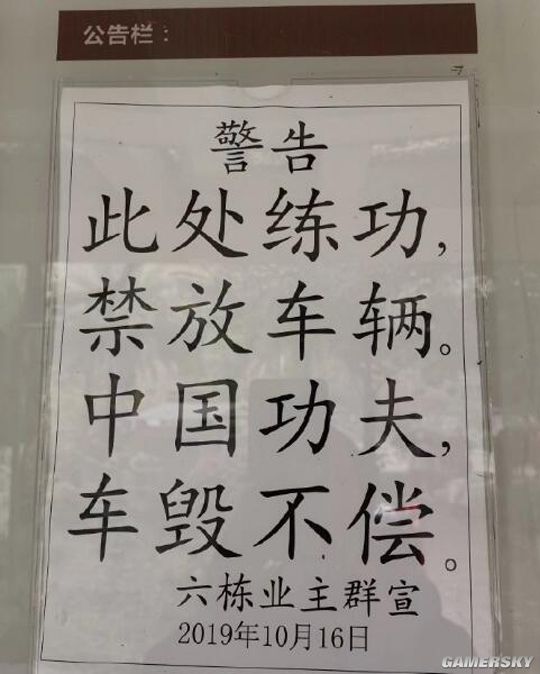 公告栏：
警告
此处练功，
禁放车辆。
中国功夫，
车毁不偿。
六栋业主群宣
2019年10月16日
GAMERSKY